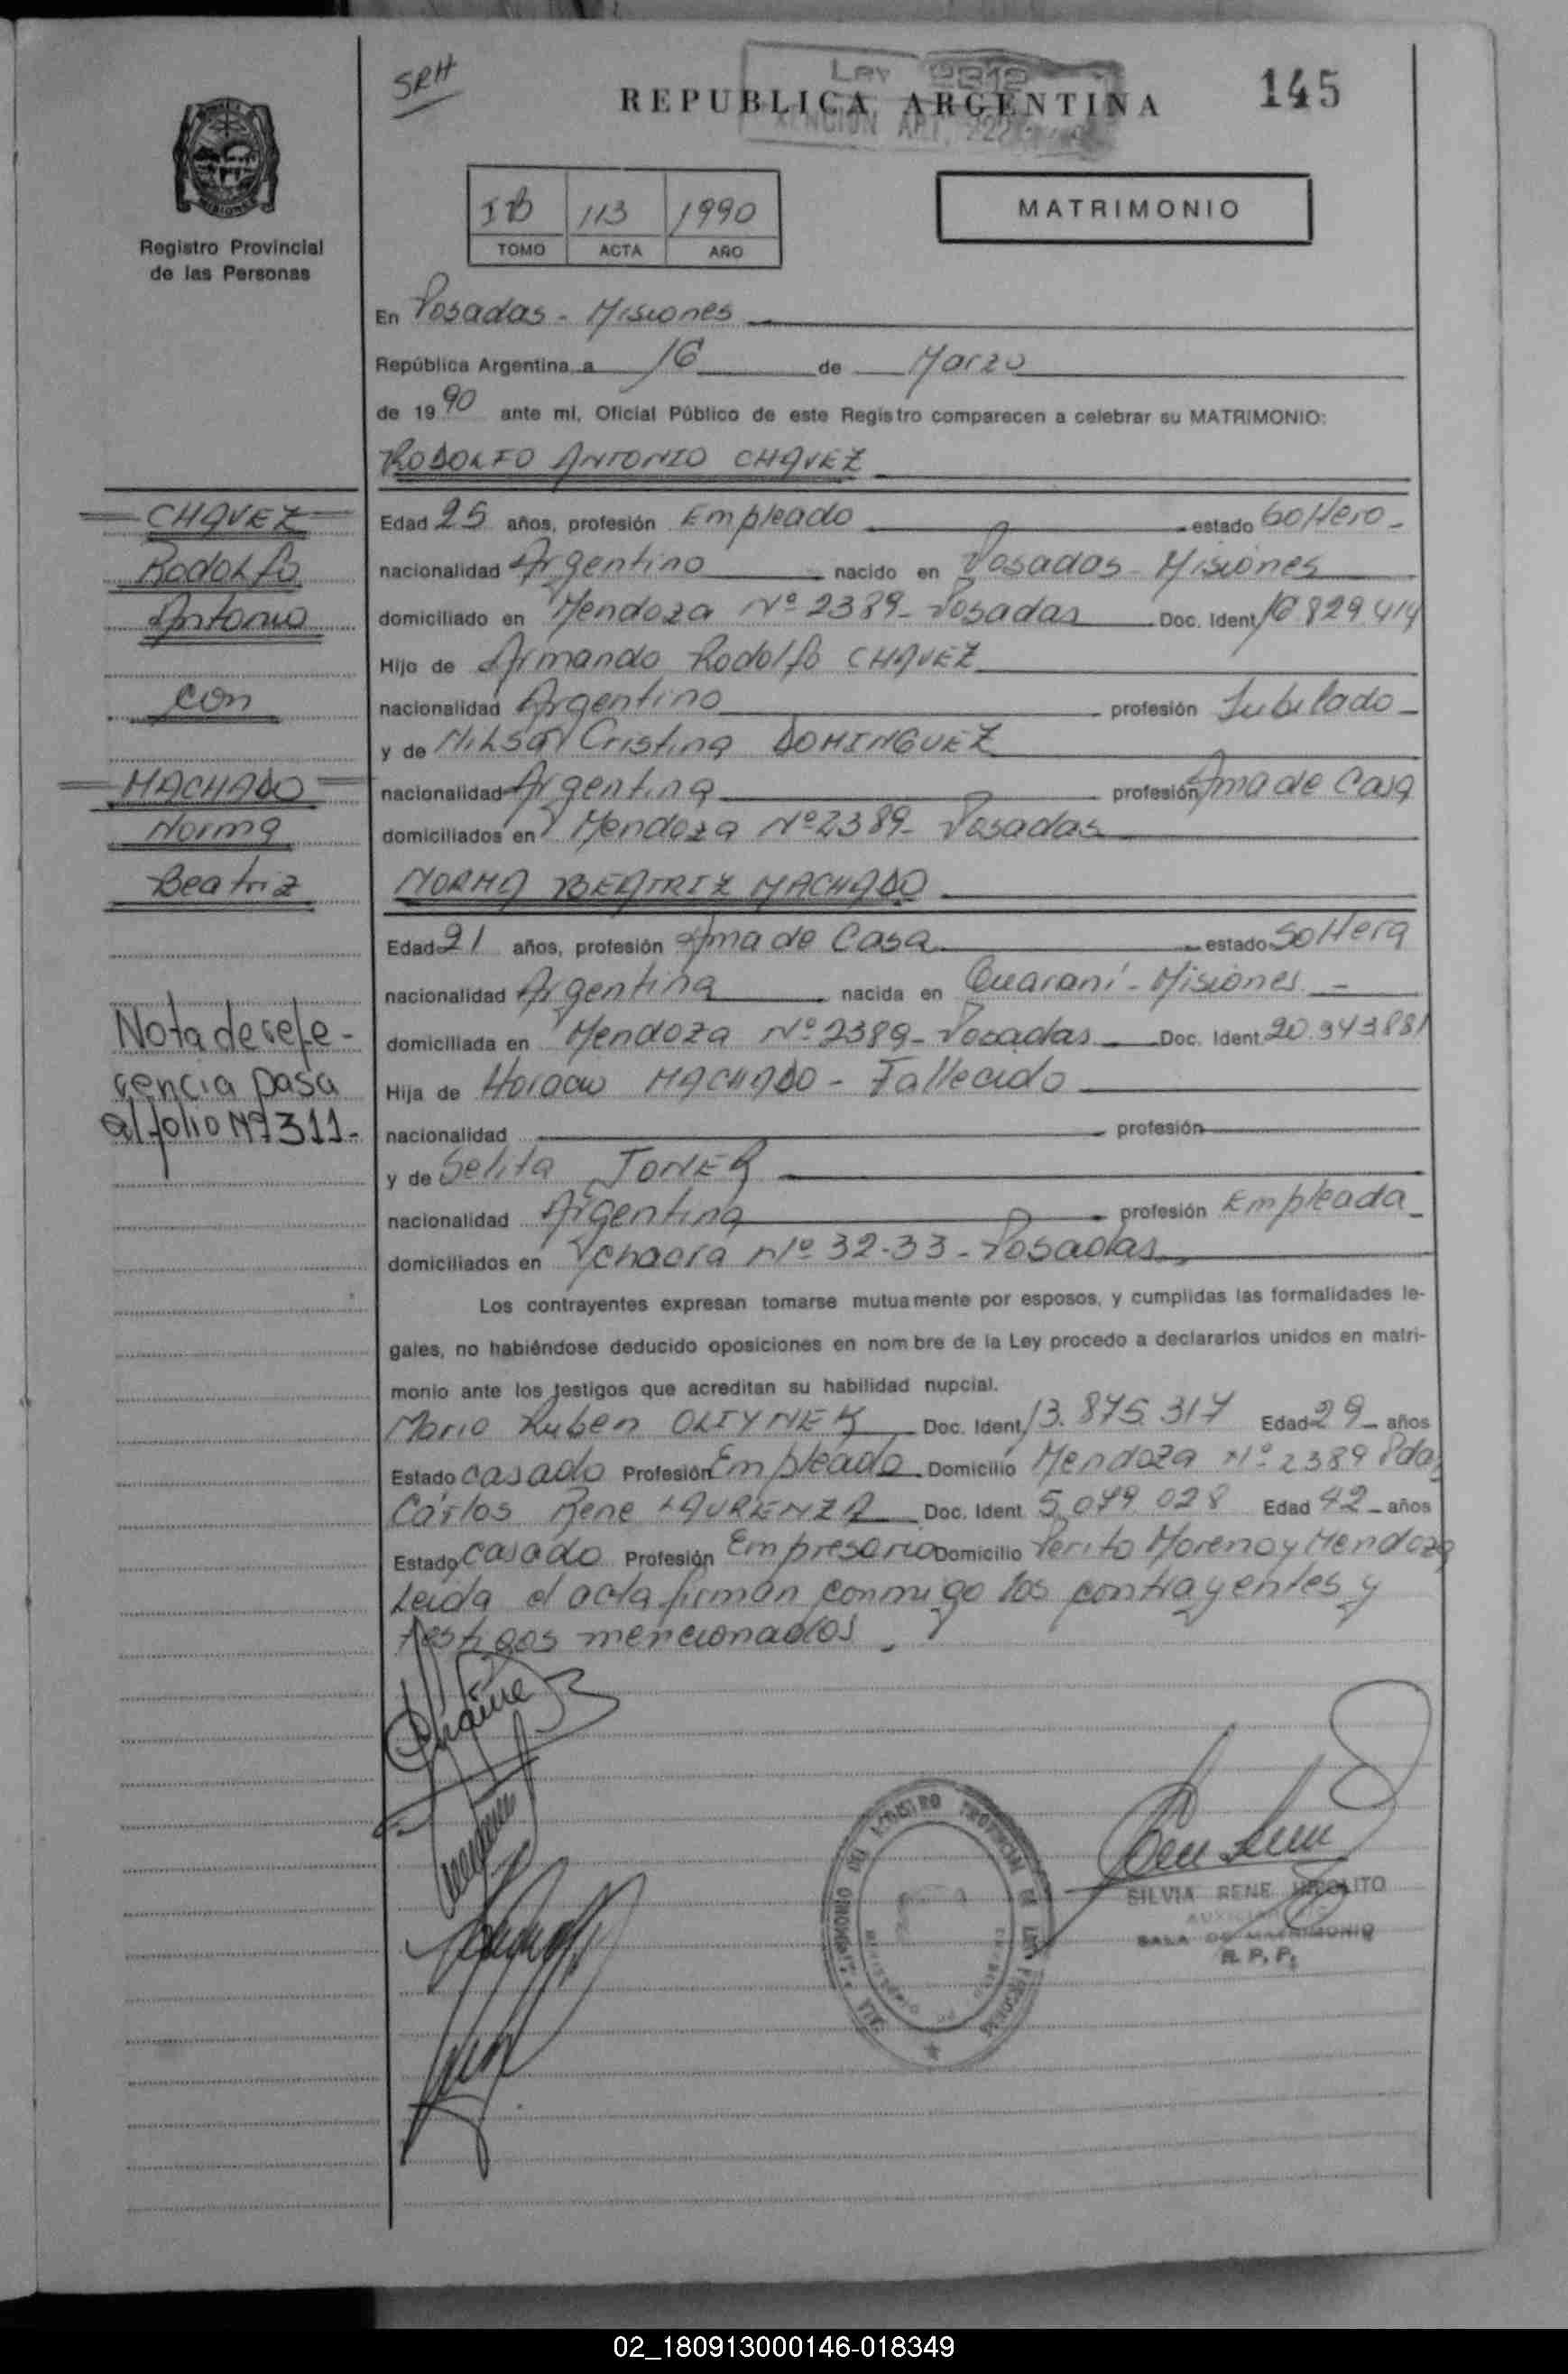 SRH
Ley
REPUBLICA ARGENTINA
145
IB 113 1990
TOMO ACTA AÑO
MATRIMONIO
Registro Provincial
de las Personas
En Posadas - Misiones
República Argentina, a 16 de Marzo
de 1990 ante mí, Oficial Público de este Registro comparecen a celebrar su MATRIMONIO:
RODOLFO ANTONIO CHAVEZ
CHAVEZ
Rodolfo
Antonio
con
MACHADO
Norma
Beatriz
Edad 25 años, profesión Empleado estado Soltero -
nacionalidad Argentino nacido en Posadas - Misiones
domiciliado en Mendoza Nº 2389 - Posadas Doc. Ident. 16.829.414
Hijo de Armando Rodolfo CHAVEZ
nacionalidad Argentino profesión Jubilado -
y de Cristina DOMINGUEZ
nacionalidad Argentina profesión Ama de Casa
domiciliados en Mendoza Nº 2389 - Posadas
NORMA BEATRIZ MACHADO
Edad 21 años, profesión Ama de Casa estado Soltera
nacionalidad Argentina nacida en Guaraní - Misiones -
domiciliada en Mendoza Nº 2389 - Posadas Doc. Ident. 20.343.881
Hija de Horacio MACHADO - Fallecido
nacionalidad profesión
Nota de refe-
rencia pasa
al folio Nº 311-
y de Selita
nacionalidad Argentina profesión Empleada -
domiciliados en Chacra Nº 32-33 - Posadas
Los contrayentes expresan tomarse mutuamente por esposos, y cumplidas las formalidades le-
gales, no habiéndose deducido oposiciones en nombre de la Ley procedo a declararlos unidos en matri-
monio ante los testigos que acreditan su habilidad nupcial.
Mario Ruben OLIYNEK Doc. Ident. 13.875.317 Edad 29 - años
Estado casado Profesión Empleado Domicilio Mendoza Nº 2389 Pdas
Carlos Rene LAURENZA Doc. Ident. 5.079.028 Edad 42 - años
Estado casado Profesión Empresario Domicilio Perito Moreno y Mendoza
Leida el acta firman conmigo los contrayentes y
testigos mencionados.
SILVIA RENE HIPOLITO
AUXILIAR
SALA DE MATRIMONIO
R. P. P.
02_180913000146-018349